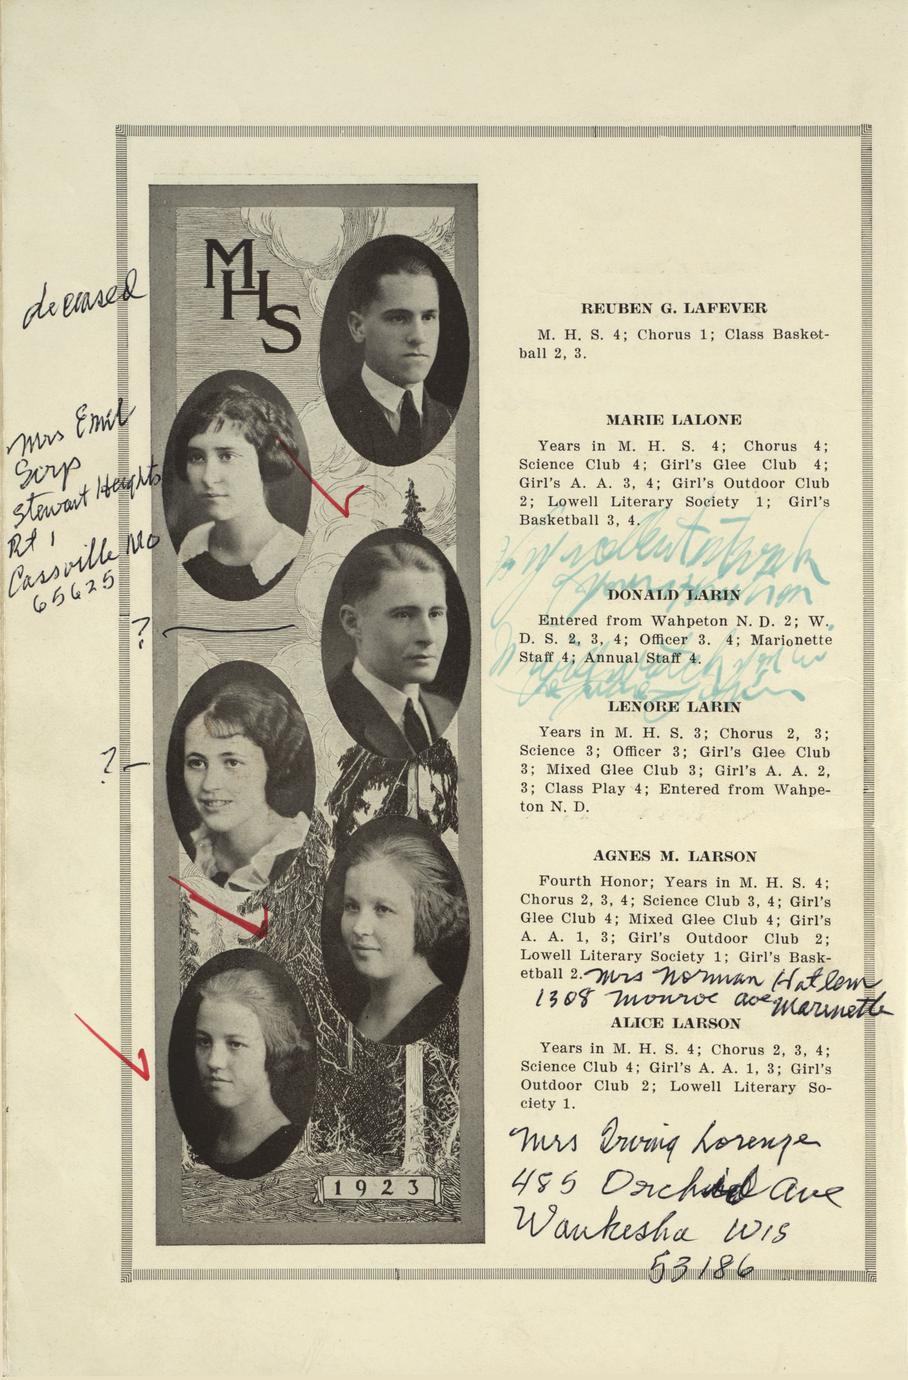 MHS
deceased
Mrs Emil
Serp
Stewart Heights
Rt 1
Cassville Mo
65625
?
?
1923
REUBEN G. LAFEVER
M. H. S. 4; Chorus 1; Class Basket-
ball 2, 3.
MARIE LALONE
Years in M. H. S. 4; Chorus 4;
Science Club 4; Girl's Glee Club 4;
Girl's A. A. 3, 4; Girl's Outdoor Club
2; Lowell Literary Society 1; Girl's
Basketball 3, 4.
DONALD LARIN
Entered from Wahpeton N. D. 2; W.
D. S. 2, 3, 4; Officer 3. 4; Marionette
Staff 4; Annual Staff 4.
LENORE LARIN
Years in M. H. S. 3; Chorus 2, 3;
Science 3; Officer 3; Girl's Glee Club
3; Mixed Glee Club 3; Girl's A. A. 2,
3; Class Play 4; Entered from Wahpe-
ton N. D.
AGNES M. LARSON
Fourth Honor; Years in M. H. S. 4;
Chorus 2, 3, 4; Science Club 3, 4; Girl's
Glee Club 4; Mixed Glee Club 4; Girl's
A. A. 1, 3; Girl's Outdoor Club 2;
Lowell Literary Society 1; Girl's Bask-
etball 2. Mrs Norman Hatlem
1308 Monroe ave Marinette
ALICE LARSON
Years in M. H. S. 4; Chorus 2, 3, 4;
Science Club 4; Girl's A. A. 1, 3; Girl's
Outdoor Club 2; Lowell Literary So-
ciety 1.
Mrs Irving Lorenze
485 Orchid Ave
Waukesha Wis
53186